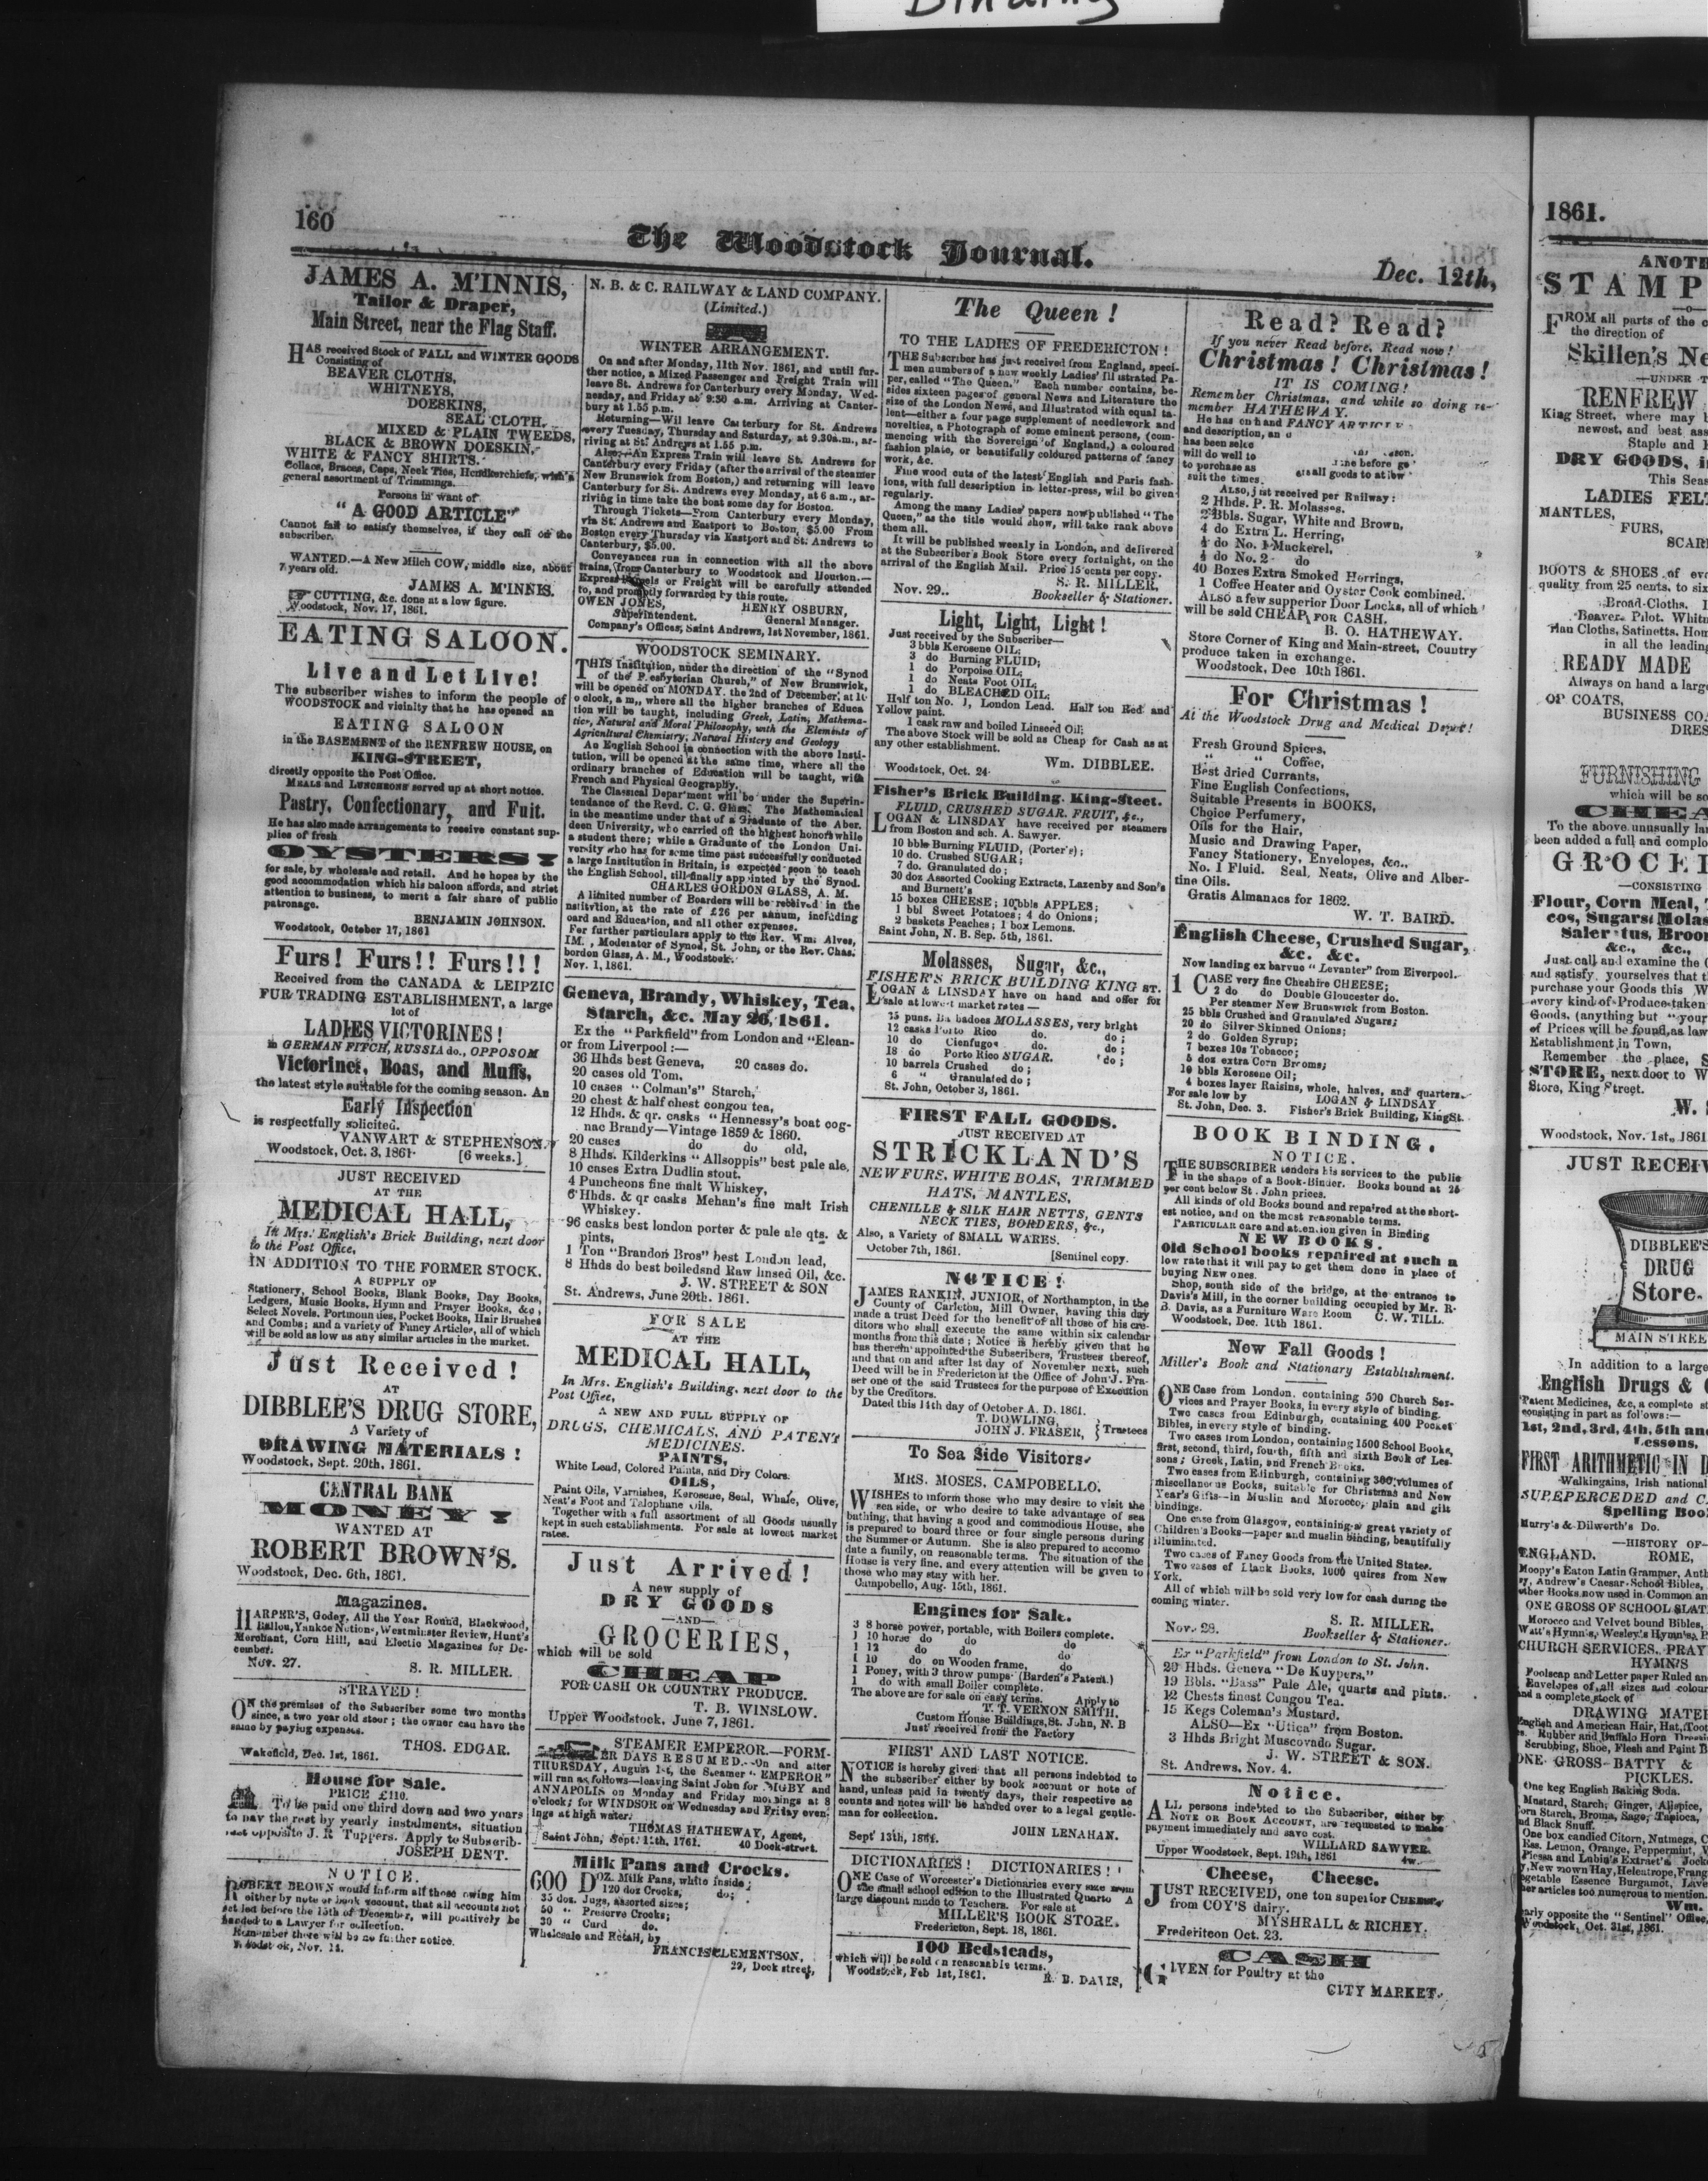 Binding
160
The Woodstock Journal.
Dec. 12th,
JAMES A. M'INNIS,
Tailor & Draper,
Main Street, near the Flag Staff.
HAS received Stock of FALL and WINTER GOODS
Consisting of
BEAVER CLOTHS,
WHITNEYS,
DOESKINS,
SEAL CLOTH,
MIXED & PLAIN TWEEDS,
BLACK & BROWN DOESKIN,
WHITE & FANCY SHIRTS.
Collars, Braces, Caps, Neck Ties, Handkerchiefs, with a
general assortment of Trimmings.
Persons in want of
"A GOOD ARTICLE"
Cannot fail to satisfy themselves, if they call on the
subscriber.
WANTED.—A New Milch COW, middle size, about
7 years old.
JAMES A. M'INNIS.
CUTTING, &c. done at a low figure.
Woodstock, Nov. 17, 1861.
EATING SALOON.
Live and Let Live!
The subscriber wishes to inform the people of
WOODSTOCK and vicinity that he has opened an
EATING SALOON
in the BASEMENT of the RENFREW HOUSE, on
KING-STREET,
directly opposite the Post Office.
MEALS and LUNCHEONS served up at short notice.
Pastry, Confectionary, and Fuit.
He has also made arrangements to receive constant sup-
plies of fresh
OYSTERS
for sale, by wholesale and retail. And he hopes by the
good accommodation which his saloon affords, and strict
attention to business, to merit a fair share of public
patronage.
BENJAMIN JOHNSON.
Woodstock, October 17, 1861
Furs! Furs!! Furs!!!
Received from the CANADA & LEIPZIC
FUR TRADING ESTABLISHMENT, a large
lot of
LADIES VICTORINES!
in GERMAN FITCH, RUSSIA do., OPPOSOM
Victorines, Boas, and Muffs,
the latest style suitable for the coming season. An
Early Inspection
is respectfully solicited.
VANWART & STEPHENSON.
Woodstock, Oct. 3, 1861. [6 weeks.]
JUST RECEIVED
AT THE
MEDICAL HALL,
In Mrs. English's Brick Building, next door
to the Post Office,
IN ADDITION TO THE FORMER STOCK.
A SUPPLY OF
Stationery, School Books, Blank Books, Day Books,
Ledgers, Music Books, Hymn and Prayer Books, &c,
Select Novels, Portmonnies, Pocket Books, Hair Brushes
and Combs; and a variety of Fancy Articles, all of which
will be sold as low as any similar articles in the market.
Just Received!
AT
DIBBLEE'S DRUG STORE,
A Variety of
DRAWING MATERIALS!
Woodstock, Sept. 20th, 1861.
CENTRAL BANK
MONEY
WANTED AT
ROBERT BROWN'S.
Woodstock, Dec. 6th, 1861.
Magazines.
HARPER'S, Godey, All the Year Round, Blackwood,
Ballou, Yankee Notions, Westminster Review, Hunt's
Merchant, Corn Hill, and Electic Magazines for De-
cember.
Nov. 27. S. R. MILLER.
STRAYED!
ON the premises of the Subscriber some two months
since, a two year old steer; the owner can have the
same by paying expenses.
THOS. EDGAR.
Wakefield, Dec. 1st, 1861.
House for Sale.
PRICE £110.
To be paid one third down and two years
to pay the rest by yearly instalments, situation
just opposite J. R Tuppers. Apply to Subscrib-
JOSEPH DENT.
NOTICE.
ROBERT BROWN would inform all those owing him
either by note or book account, that all accounts not
set led before the 15th of December, will positively be
handed to a Lawyer for collection.
Remember there will be no further notice.
Woodstock, Nov. 14.
N. B. & C. RAILWAY & LAND COMPANY.
(Limited.)
WINTER ARRANGEMENT.
On and after Monday, 11th Nov. 1861, and until fur-
ther notice, a Mixed Passenger and Freight Train will
leave St. Andrews for Canterbury every Monday, Wed-
nesday, and Friday at 9:30 a.m. Arriving at Canter-
bury at 1.55 p.m.
Returning—Wil leave Canterbury for St. Andrews
every Tuesday, Thursday and Saturday, at 9.30a.m., ar-
riving at St. Andrews at 1.55 p.m.
Also:—An Express Train will leave St. Andrews for
Canterbury every Friday (after the arrival of the steamer
New Brunswick from Boston,) and returning will leave
Canterbury for St. Andrews evey Monday, at 6 a.m., ar-
riving in time take the boat some day for Boston.
Through Tickets—From Canterbury every Monday,
via St. Andrews and Eastport to Boston, $5.00 From
Boston every Thursday via Eastport and St. Andrews to
Canterbury, $5.00.
Conveyances run in connection with all the above
trains, from Canterbury to Woodstock and Houlton.—
Express Parcels or Freight will be carefully attended
to, and promptly forwarded by this route.
OWEN JONES, HENRY OSBURN,
Superintendent. General Manager.
Company's Offices, Saint Andrews, 1st November, 1861.
WOODSTOCK SEMINARY.
THIS Institution, under the direction of the "Synod
of the Presbyterian Church," of New Brunswick,
will be opened on MONDAY. the 2nd of December, at 10
o clock, a m,, where all the higher branches of Educa
tion will be taught, including Greek, Latin, Mathema-
tics, Natural and Moral Philosophy, with the Elements of
Agricultural Chemistry, Natural History and Geology
An English School in connection with the above Insti-
tution, will be opened at the same time, where all the
ordinary branches of Education will be taught, with
French and Physical Geography.
The Classical Department will be under the Superin-
tendance of the Revd. C. G. Glass. The Mathematical
in the meantime under that of a Graduate of the Aber.
deen University, who carried off the highest honors while
a student there; while a Graduate of the London Uni-
versity who has for some time past successfully conducted
a large Institution in Britain, is expected soon to teach
the English School, till finally appointed by the Synod.
CHARLES GORDON GLASS, A. M.
A limited number of Boarders will be received in the
nstitvtion, at the rate of £26 per annum, including
oard and Education, and all other expenses.
For further particulars apply to the Rev. Wm. Alves,
IM. , Moderator of Synod, St. John, or the Rev. Chas.
bordon Glass, A. M., Woodstock.
Nov. 1, 1861.
Geneva, Brandy, Whiskey, Tea,
Starch, &c. May 26, 1861.
Ex the "Parkfield" from London and "Elean-
or from Liverpool:—
36 Hhds best Geneva, 20 cases do.
20 cases old Tom,
10 cases "Colman's" Starch,
20 chest & half chest congou tea,
12 Hhds. & qr. casks "Hennessy's boat cog-
nac Brandy—Vintage 1859 & 1860.
20 cases do do old,
8 Hhds. Kilderkins "Allsoppis" best pale ale,
10 cases Extra Dudlin stout.
4 Puncheons fine malt Whiskey,
6 Hbds. & qr casks Mehan's fine malt Irish
Whiskey.
96 casks best london porter & pale ale qts. &
pints,
1 Ton "Brandon Bros" best London lead,
8 Hhds do best boiledand Raw linsed Oil, &c.
J. W. STREET & SON
St. Andrews, June 20th. 1861.
FOR SALE
AT THE
MEDICAL HALL,
In Mrs. English's Building, next door to the
Post Office,
A NEW AND FULL SUPPLY OF
DRUGS, CHEMICALS, AND PATENT
MEDICINES.
PAINTS,
White Lead, Colored Paints, and Dry Colors.
OILS,
Paint Oils, Varnishes, Kerosene, Seal, Whale, Olive,
Neat's Foot and Talophane Oils.
Together with a full assortment of all Goods usually
kept in such establishments. For sale at lowest market
rates.
Just Arrived!
A new supply of
DRY GOODS
—AND—
GROCERIES,
which will be sold
CHEAP
FOR CASH OR COUNTRY PRODUCE.
T. B. WINSLOW.
Upper Woodstock, June 7, 1861.
STEAMER EMPEROR.—FORM-
ER DAYS RESUMED.—On and after
THURSDAY, August 1st, the Steamer "EMPEROR"
will run as follows—leaving Saint John for DIGBY and
ANNAPOLIS on Monday and Friday mornings at 8
o'clock; for WINDSOR on Wednesday and Friday even;
ings at high water.
THOMAS HATHEWAY, Agent,
Saint John, Sept. 11th, 1761. 40 Dock-street.
Milk Pans and Crocks.
600 DOZ. Milk Pans, white inside;
120 doz Crocks, do;
35 doz. Jugs, assorted sizes;
50 " Preserve Crocks;
30 " Curd do.
Wholesale and Retail, by
FRANCIS CLEMENTSON,
29, Dock street,
The Queen!
TO THE LADIES OF FREDERICTON!
THE Subscriber has just received from England, speci-
men numbers of a new weekly Ladies' Illistrated Pa-
per, called "The Queen." Each number contains, be-
sides sixteen pages of general News and Literature the
size of the London News, and Illustrated with equal ta-
lent—either a four page supplement of needlework and
novelties, a Photograph of some eminent persons, (com-
mencing with the Sovereign of England,) a coloured
fashion plate, or beautifully coldured patterns of fancy
work, &c.
Fine wood cuts of the latest English and Paris fash-
ions, with full description in letter-press, will be given
regularly.
Among the many Ladies' papers now published "The
Queen," as the title would show, will take rank above
them all.
It will be published weekly in London, and delivered
at the Subscriber's Book Store every fortnight, on the
arrival of the English Mail. Price 15 cents per copy.
S. R. MILLER,
Nov. 29.. Bookseller & Stationer.
Light, Light, Light!
Just received by the Subscriber—
3 bbls Kerosene OIL;
3 do Burning FLUID;
1 do Porpoise OIL;
1 do Neats Foot OIL;
1 do BLEACHED OIL;
Half ton No. 1, London Lead. Half ton Red and
Yellow paint.
1 cask raw and boiled Linseed Oil;
The above Stock will be sold as Cheap for Cash as at
any other establishment.
Wm. DIBBLEE.
Woodstock, Oct. 24
Fisher's Brick Building. King-Steet.
FLUID, CRUSHED SUGAR. FRUIT, &c.,
LOGAN & LINSDAY have received per steamers
from Boston and sch. A. Sawyer.
10 bbls Burning FLUID, (Porter's);
10 do. Crushed SUGAR;
7 do. Granulated do;
30 doz Assorted Cooking Extracts, Lazenby and Son's
and Burnett's
15 boxes CHEESE; 10 bbls APPLES;
1 bbl Sweet Potatoes; 4 do Onions;
2 baskets Peaches; 1 box Lemons.
Saint John, N. B. Sep. 5th, 1861.
Molasses, Sugar, &c.,
FISHER'S BRICK BUILDING KING ST.
LOGAN & LINSDAY have on hand and offer for
sale at lowest market rates—
25 puns. Barbadoes MOLASSES, very bright
12 casks Porto Rico do. do;
10 do Cienfugos do. do;
18 do Porto Rico SUGAR. do;
10 barrels Crushed do;
6 " Granulated do;
St. John, October 3, 1861.
FIRST FALL GOODS.
JUST RECEIVED AT
STRICKLAND'S
NEW FURS, WHITE BOAS, TRIMMED
HATS, MANTLES,
CHENILLE & SILK HAIR NETTS, GENTS
NECK TIES, BORDERS, &c.,
Also, a Variety of SMALL WARES.
October 7th, 1861. [Sentinel copy.
NOTICE!
JAMES RANKIN, JUNIOR, of Northampton, in the
County of Carleton, Mill Owner, having this day
made a trust Deed for the benefit of all those of his cre-
ditors who shall execute the same within six calendar
months from this date; Notice is hereby given that he
has therein appointed the Subscribers, Trustees thereof,
and that on and after 1st day of November next, such
Deed will be in Fredericton at the Office of John J. Fra-
ser one of the said Trustees for the purpose of Execution
by the Creditors.
Dated this 14th day of October A. D. 1861.
T. DOWLING,
JOHN J. FRASER, } Trustees
To Sea Side Visitors.
MRS. MOSES, CAMPOBELLO.
WISHES to inform those who may desire to visit the
sea side, or who desire to take advantage of sea
bathing, that having a good and commodious House, she
is prepared to board three or four single persons during
the Summer or Autumn. She is also prepared to accomo
date a family, on reasonable terms. The situation of the
House is very fine, and every attention will be given to
those who may stay with her.
Campobello, Aug. 15th, 1861.
Engines for Sale.
3 8 horse power, portable, with Boilers complete.
1 10 horse do do do
1 12 do do do
1 10 do on Wooden frame, do
1 Poney, with 3 throw pumps. (Burden's Patent.)
1 do with small Boiler complete.
The above are for sale on easy terms. Apply to
T. T. VERNON SMITH,
Custom House Buildings, St. John, N. B
Just received from the Factory
FIRST AND LAST NOTICE.
NOTICE is hereby given that all persons indebted to
the subscriber either by book account or note of
hand, unless paid in twenty days, their respective ac
counts and notes will be handed over to a legal gentle-
man for collection.
JOHN LENAHAN.
Sept 13th, 1861.
DICTIONARIES! DICTIONARIES!
ONE Case of Worcester's Dictionaries every size from
the small school edition to the Illustrated Quarto A
large discount made to Teachers. For sale at
MILLER'S BOOK STORE.
Fredericton, Sept. 18, 1861.
100 Bedsteads,
which will be sold on reasonable terms.
Woodstock, Feb 1st, 1861. R. B. DAVIS,
Read? Read?
If you never Read before, Read now!
Christmas! Christmas!
IT IS COMING!
Remember Christmas, and while so doing re-
member HATHEWAY.
He has on hand FANCY
and description,
has been
will do well to
to purchase as
suit the times.
Also, just received per Railway:
2 Hhds. P. R. Molasses.
2 Bbls. Sugar, White and Brown,
4 do Extra L. Herring,
4 do No. 1 Mackerel,
4 do No. 2 do
40 Boxes Extra Smoked Herrings,
1 Coffee Heater and Oyster Cook combined.
ALSO a few supperior Door Locks, all of which
will be sold CHEAP FOR CASH.
B. O. HATHEWAY.
Store Corner of King and Main-street, Country
produce taken in exchange.
Woodstock, Dec 10th 1861.
For Christmas!
At the Woodstock Drug and Medical Depot!
Fresh Ground Spices,
" " Coffee,
Best dried Currants,
Fine English Confections,
Suitable Presents in BOOKS,
Choice Perfumery,
Oils for the Hair,
Music and Drawing Paper,
Fancy Stationery, Envelopes, &c.,
No. 1 Fluid. Seal, Neats, Olive and Alber-
tine Oils.
Gratis Almanacs for 1862.
W. T. BAIRD.
English Cheese, Crushed Sugar,
&c. &c.
Now landing ex barvue "Levanter" from Eiverpool.
1 CASE very fine Cheshire CHEESE;
2 do do Double Gloucester do.
Per steamer New Brunswick from Boston.
25 bbls Crushed and Granulated Sugars;
20 do Silver Skinned Onions;
2 do Golden Syrup;
7 boxes 10s Tobacco;
5 doz extra Corn Brooms;
10 bbls Kerosene Oil;
4 boxes layer Raisins, whole, halves, and quarters.
For sale low by LOGAN & LINDSAY
St. John, Dec. 3. Fisher's Brick Building, KingSt.
BOOK BINDING.
NOTICE.
THE SUBSCRIBER tenders his services to the public
in the shape of a Book-Binder. Books bound at 25
per cent below St. John prices.
All kinds of old Books bound and repaired at the short-
est notice, and on the most reasonable terms.
PARTICULAR care and attention given in Binding
NEW BOOKS.
Old School books repaired at such a
low rate that it will pay to get them done in place of
buying NEW ones.
Shop, south side of the bridge, at the entrance to
Davis's Mill, in the corner building occupied by Mr. R.
B. Davis, as a Furniture Ware Room C. W. TILL.
Woodstock, Dec. 10th 1861.
New Fall Goods!
Miller's Book and Stationary Establishment.
ONE Case from London, containing 500 Church Ser-
vices and Prayer Books, in every style of binding.
Two cases from Edinburgh, containing 400 Pocket
Bibles, in every style of binding.
Two cases from London, containing 1500 School Books,
first, second, third, fourth, fifth and sixth Book of Les-
sons; Greek, Latin, and French Books.
Two cases from Edinburgh, containing 300 volumes of
miscellaneous Books, suitable for Christmas and New
Year's Gifts—in Muslin and Morocco, plain and gilt
bindings.
One case from Glasgow, containing a great variety of
Children's Books—paper and muslin binding, beautifully
illuminated.
Two cases of Fancy Goods from the United States.
Two cases of Llack Books, 1000 quires from New
York.
All of which will be sold very low for cash during the
coming winter.
S. R. MILLER.
Nov. 28. Bookseller & Stationer.
Ex "Parkfield" from London to St. John.
20 Hhds. Geneva "De Kuypers,"
19 Bbls. "Bass" Pale Ale, quarts and pints.
12 Chests finest Congou Tea.
15 Kegs Coleman's Mustard.
ALSO—Ex "Utica" from Boston.
3 Hhds Bright Muscovado Sugar.
J. W. STREET & SON.
St. Andrews, Nov. 4.
Notice.
ALL persons indebted to the Subscriber, either by
NOTE OR BOOK ACCOUNT, are requested to make
payment immediately and save cost.
WILLARD SAWYER.
Upper Woodstock, Sept. 19th, 1861 4w.
Cheese, Cheese.
JUST RECEIVED, one ton superior CHEESE,
from COY'S dairy.
MYSHRALL & RICHEY.
Frederiteon Oct. 23.
CASH
GIVEN for Poultry at the
CITY MARKET.
1861.
STAMP
FROM all parts of the
the direction of
Skillen's
—UNDER
RENFREW
King Street, where may
newest, and best
Staple and
DRY GOODS,
This
LADIES
MANTLES,
FURS,
BOOTS & SHOES of
quality from 25 cents, to
Broad-Cloths,
Beaver, Pilot,
Cloths, Satinetts,
in all the leading
READY MADE
Always on hand a
OP COATS,
BUSINESS
FURNISHING
which will be
To the above unusually
been added a full and
—CONSISTING
Flour, Corn Meal,
cos, Sugars,
&c., &c.,
Just call and examine the
and satisfy yourselves that
purchase your Goods this
every kind of Produce taken
Goods, (anything but "your
of Prices will be found, as
Establishment in Town,
Remember the place,
STORE, next door to
Store, King Street.
W.
Woodstock, Nov. 1st, 1861
JUST
DIBBLEE'S
DRUG
Store.
MAIN
In addition to a large
English Drugs &
Patent Medicines, &c, a complete
consisting in part as follows:—
1st, 2nd, 3rd, 4th, 5th
Lessons,
FIRST ARITHMETIC IN
Walkingains, Irish national
SUPEPERCEDED and
Spelling
Murry's & Dilworth's Do.
—HISTORY OF—
ENGLAND. ROME,
Andrew's Caesar, School Bibles,
other Books now used in Common
ONE GROSS OF SCHOOL
Morocco and Velvet bound Bibles,
Watt's Hymn's, Wesley's Hymn's,
CHURCH SERVICES,
HYMNS
Foolscap and Letter paper Ruled
Envelopes of all sizes and
and a complete stock of
DRAWING
English and American Hair, Hat,
Rubber and Buffalo Horn
Scrubbing, Shoe, Flesh and Paint
ONE GROSS BATTY &
PICKLES.
One keg English Baking Soda.
Mustard, Starch, Ginger, Allspice,
Corn Starch, Broma, Sage, Tapioca,
and Black Snuff.
One box candied Citorn, Nutmegs,
Ess. Lemon, Orange, Peppermint,
New mown Hay,
Essence Burgamot,
articles too numerous to mention.
Wm.
opposite the "Sentinel" Office,
Woodstock, Oct. 31st, 1861.